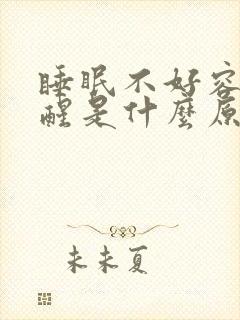 睡眠不好容
醒是什麼原
未未夏